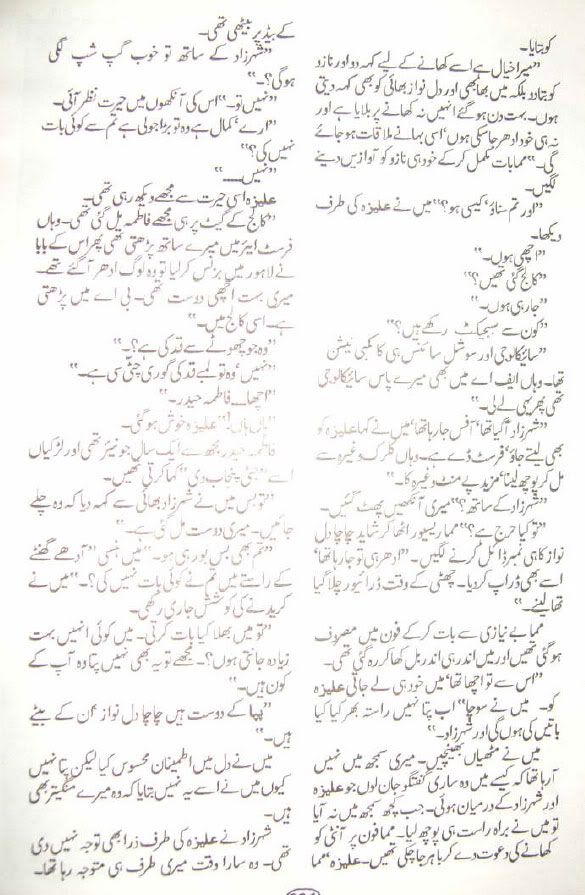 کو بتایا۔
”میرا خیال ہے اسے کھانے کے لیے کہہ دو اور نازو
کو بتا دو بلکہ میں بھابھی اور دل نواز بھائی کو بھی کہہ دیتی
ہوں۔ بہت دن ہو گئے انہیں نہ کھانے پر بلایا ہے اور
نہ ہی خود ادھر جا سکی ہوں‘ اسی بہانے ملاقات ہو جائے
گی۔“ مما بات مکمل کر کے خود ہی نازو کو آوازیں دینے
لگیں۔
”اور تم سناؤ‘ کیسی ہو؟“ میں نے علیزہ کی طرف
دیکھا۔
”اچھی ہوں۔“
”کالج گئی تھیں؟“
”جا رہی ہوں۔“
”کون سے سبجیکٹ رکھے ہیں؟“
”سائیکالوجی اور سوشل سائنس ہی کا کمبی نیشن
تھا۔ وہاں ایف اے میں بھی میرے پاس سائیکالوجی
تھی پھر یہی لے لی۔“
”شہرزاد آ گیا تھا‘ آفس جا رہا تھا‘ میں نے کہا علیزہ کو
بھی لیتے جاؤ‘ فرسٹ ڈے ہے۔ وہاں کلرک وغیرہ سے
مل کر پوچھ لینا‘ مزید پے منٹ وغیرہ کا۔“
”شہرزاد کے ساتھ؟“ میری آنکھیں پھٹ گئیں۔
”تو کیا حرج ہے؟“ مما ریسیور اٹھا کر شاید چاچا دل
نواز کا ہی نمبر ڈائل کرنے لگیں۔ ”ادھر ہی تو جا رہا تھا‘
اسے بھی ڈراپ کر دیا۔ چھٹی کے وقت ڈرائیور چلا گیا
تھا لینے۔“
مما بے نیازی سے بات کر کے فون میں مصروف
ہو گئی تھیں اور میں اندر ہی اندر بل کھا کر رہ گئی تھی۔
”اس سے تو اچھا تھا‘ میں خود ہی لے جاتی علیزہ
کو۔ میں نے سوچا“ اب پتا نہیں راستہ بھر کیا کیا
باتیں کی ہوں گی اور شہرزاد۔“
میں نے مٹھیاں بھینچیں۔ میری سمجھ میں نہیں
آ رہا تھا کہ کیسے میں وہ ساری گفتگو جان لوں جو علیزہ
اور شہرزاد کے درمیان ہوئی۔ جب کچھ سمجھ میں نہ آیا
تو میں نے براہ راست ہی پوچھ لیا۔ مما فون پر آنٹی کو
کھانے کی دعوت دے کر باہر جا چکی تھیں۔ علیزہ ”مما
کے بیڈ پر بیٹھی تھی۔
”شہرزاد کے ساتھ تو خوب گپ شپ لگی
ہو گی؟۔“
”نہیں تو۔“ اس کی آنکھوں میں حیرت نظر آئی۔
”ارے‘ کمال ہے وہ تو بڑا جولی ہے تم سے کوئی بات
نہیں کی؟“
”نہیں۔۔۔۔“
علیزہ اسی حیرت سے مجھے دیکھ رہی تھی۔
”کالج کے گیٹ پر ہی مجھے فاطمہ مل گئی تھی۔ وہاں
فرسٹ ایئر میں میرے ساتھ پڑھتی تھی پھر اس کے بابا
نے لاہور میں بزنس کر لیا تو وہ لوگ ادھر آ گئے تھے۔
میری بہت اچھی دوست تھی۔ بی اے میں پڑھتی
ہے۔ اسی کالج میں۔“
”وہ جو چھوٹے سے قد کی ہے؟۔“
”نہیں‘ وہ تو لمبے قد کی گوری چٹی سی ہے۔“
”اچھا۔۔۔ فاطمہ حیدر۔“
”ہاں ہاں!“ علیزہ خوش ہو گئی۔
فاطمہ حیدر مجھ سے ایک سال جونیئر تھی اور لڑکیاں
اسے ”جٹی پنجاب دی“ کہا کرتی تھیں۔
”تو بس میں نے شہرزاد بھائی سے کہہ دیا کہ وہ چلے
جائیں۔ میری دوست مل گئی ہے۔“
”تم بھی بس بور ہی ہو۔“ میں ہنسی ”آدھے گھنٹے
کے راستے میں تم نے کوئی بات نہیں کی؟۔“ میں نے
کریدنے کی کوشش جاری رکھی۔
”تو میں بھلا کیا بات کرتی۔ میں کوئی انہیں بہت
زیادہ جانتی ہوں؟۔ مجھے تو یہ بھی نہیں پتا وہ آپ کے
کون ہیں۔“
”پپا کے دوست ہیں چاچا دل نواز‘ ان کے بیٹے
ہیں۔“
میں نے دل میں اطمینان محسوس کیا لیکن پتا نہیں
کیوں میں نے اسے یہ نہیں بتایا کہ وہ میرے منگیتر بھی
ہیں۔
شہرزاد نے علیزہ کی طرف ذرا بھی توجہ نہیں دی
تھی۔ وہ سارا وقت میری طرف ہی متوجہ رہا تھا۔